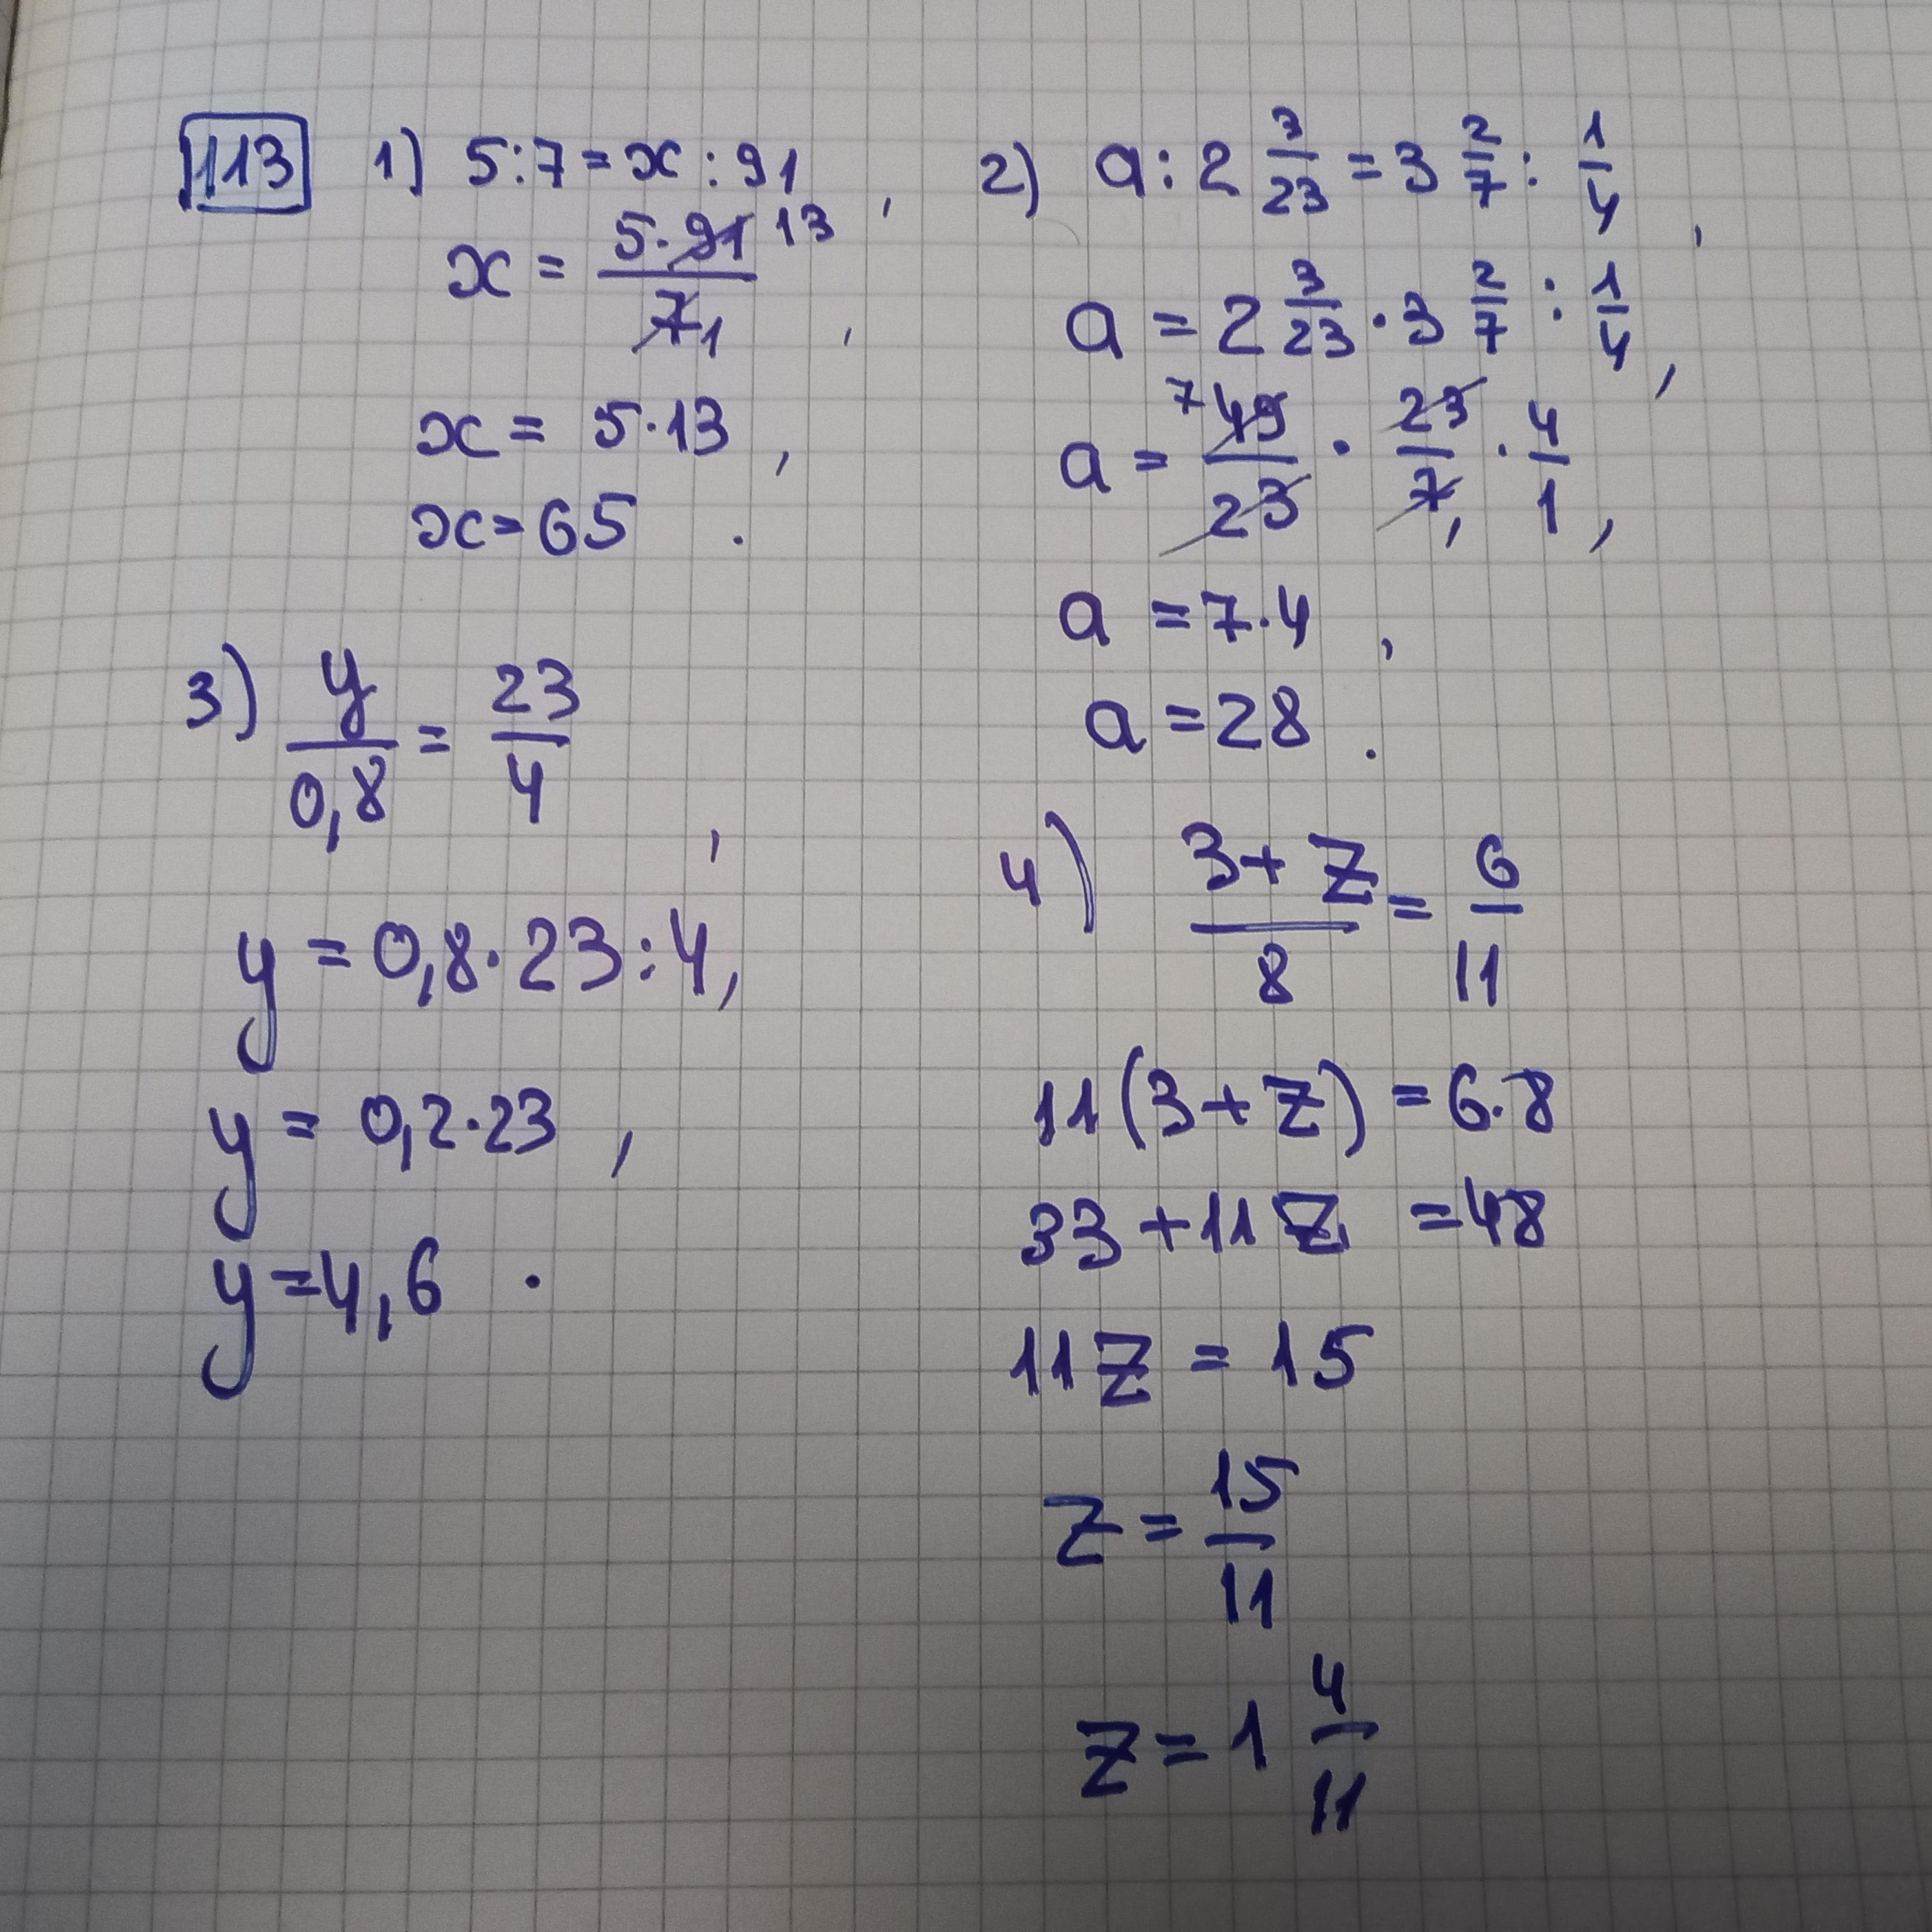 113 1) 5:7=x:91,
x = 5·91 13 / 7 1,
x = 5·13,
x=65.
2) a : 2 3/23 = 3 2/7 : 1/4,
a = 2 3/23 · 3 2/7 : 1/4,
a = 7 49/23 · 23/7 1 · 4/1,
a = 7·4,
a = 28.
3) y/0,8 = 23/4,
y = 0,8·23:4,
y = 0,2·23,
y=4,6.
4) 3+z/8 = 6/11
11(3+z) = 6·8
33+11z = 48
11z = 15
z = 15/11
z = 1 4/11